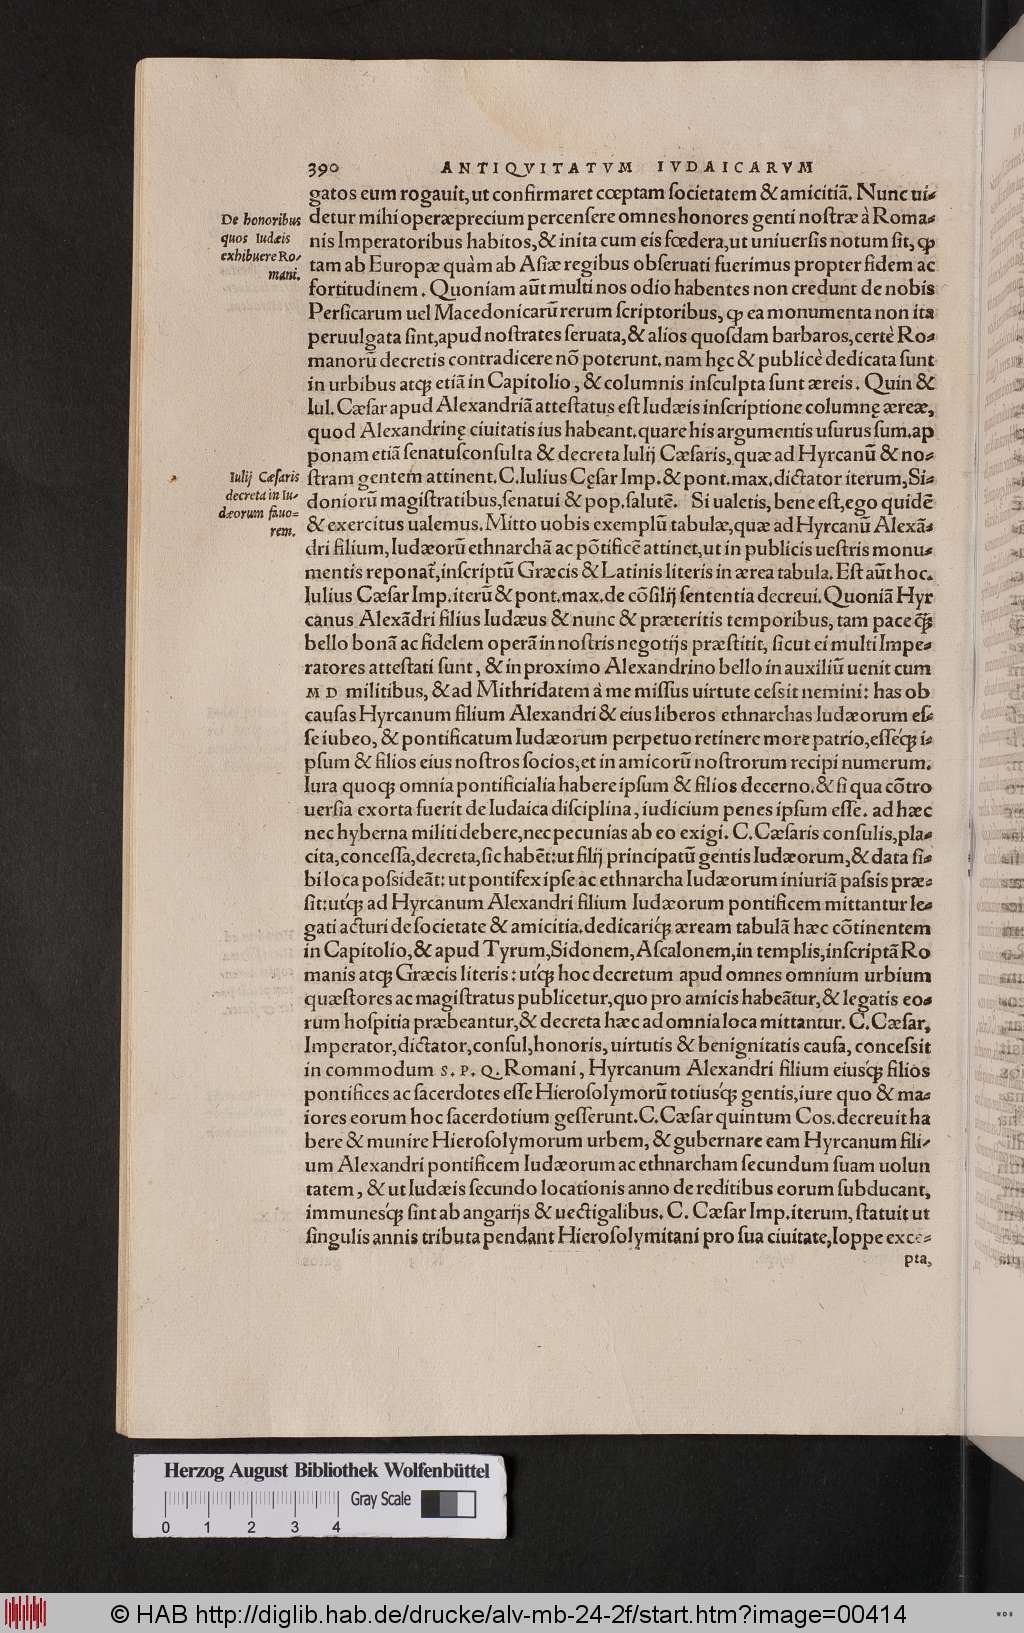 390 ANTIQVITATVM IVDAICARVM
gatos eum rogauit, ut confirmaret cœptam ſocietatem & amicitiã. Nunc ui-
De honoribus
quos Iudæis
exhibuere Ro-
mani.
detur mihi operæprecium percenſere omnes honores genti noſtræ à Roma-
nis Imperatoribus habitos, & inita cum eis fœdera, ut uniuerſis notum ſit, ꝙ
tam ab Europæ quàm ab Aſiæ regibus obſeruati fuerimus propter fidem ac
fortitudinem. Quoniam aũt multi nos odio habentes non credunt de nobis
Perſicarum uel Macedonicarũ rerum ſcriptoribus, ꝙ ea monumenta non ita
peruulgata ſint, apud noſtrates ſeruata, & alios quoſdam barbaros, certè Ro-
manorũ decretis contradicere nõ poterunt. nam hęc & publicè dedicata ſunt
in urbibus atqꝫ etiã in Capitolio, & columnis inſculpta ſunt æreis. Quin &
Iul. Cæſar apud Alexandriã atteſtatus eſt Iudæis inſcriptione columnę æreæ,
quod Alexandrinę ciuitatis ius habeant. quare his argumentis uſurus ſum. ap
ponam etiã ſenatusconſulta & decreta Iulij Cæſaris, quæ ad Hyrcanũ & no-
Iulij Cæſaris
decreta in Iu-
dæorum fauo-
rem.
ſtram gentem attinent. C. Iulius Cęſar Imp. & pont. max. dictator iterum, Si-
doniorũ magiſtratibus, ſenatui & pop. ſalutẽ. Si ualetis, bene eſt, ego quidẽ
& exercitus ualemus. Mitto uobis exemplũ tabulæ, quæ ad Hyrcanũ Alexã-
dri filium, Iudæorũ ethnarchã ac põtificẽ attinet, ut in publicis ueſtris monu-
mentis reponat᷑, inſcriptũ Græcis & Latinis literis in ærea tabula. Eſt aũt hoc.
Iulius Cæſar Imp. iterũ & pont. max. de cõſilij ſententia decreui. Quoniã Hyr
canus Alexãdri filius Iudæus & nunc & præteritis temporibus, tam pace q̃ꝫ
bello bonã ac fidelem operã in noſtris negotijs præſtitit, ſicut ei multi Impe-
ratores atteſtati ſunt, & in proximo Alexandrino bello in auxiliũ uenit cum
M D militibus, & ad Mithridatem à me miſſus uirtute ceſsit nemini: has ob
cauſas Hyrcanum filium Alexandri & eius liberos ethnarchas Iudæorum eſ-
ſe iubeo, & pontificatum Iudæorum perpetuo retinere more patrio, eſſéqꝫ i-
pſum & filios eius noſtros ſocios, et in amicorũ noſtrorum recipi numerum.
Iura quoqꝫ omnia pontificialia habere ipſum & filios decerno. & ſi qua cõtro
uerſia exorta fuerit de Iudaica diſciplina, iudicium penes ipſum eſſe. ad hæc
nec hyberna militi debere, nec pecunias ab eo exigi. C. Cæſaris conſulis, pla-
cita, conceſſa, decreta, ſic habẽt: ut filij principatũ gentis Iudæorum, & data ſi-
bi loca poſsideãt: ut pontifex ipſe ac ethnarcha Iudæorum iniuriã paſsis præ-
ſit: utqꝫ́ ad Hyrcanum Alexandri filium Iudæorum pontificem mittantur le-
gati acturi de ſocietate & amicitia. dedicariqꝫ́ æream tabulã hæc cõtinentem
in Capitolio, & apud Tyrum, Sidonem, Aſcalonem, in templis, inſcriptã Ro
manis atqꝫ Græcis literis: utqꝫ́ hoc decretum apud omnes omnium urbium
quæſtores ac magiſtratus publicetur, quo pro amicis habeãtur, & legatis eo-
rum hoſpitia præbeantur, & decreta hæc ad omnia loca mittantur. C. Cæſar,
Imperator, dictator, conſul, honoris, uirtutis & benignitatis cauſa, conceſsit
in commodum S. P. Q. Romani, Hyrcanum Alexandri filium eiusqꝫ́ filios
pontifices ac ſacerdotes eſſe Hieroſolymorũ totiusqꝫ́ gentis, iure quo & ma-
iores eorum hoc ſacerdotium geſſerunt. C. Cæſar quintum Cos. decreuit ha
bere & munire Hieroſolymorum urbem, & gubernare eam Hyrcanum fili-
um Alexandri pontificem Iudæorum ac ethnarcham ſecundum ſuam uolun
tatem, & ut Iudæis ſecundo locationis anno de reditibus eorum ſubducant,
immunesqꝫ́ ſint ab angarijs & uectigalibus. C. Cæſar Imp. iterum, ſtatuit ut
ſingulis annis tributa pendant Hieroſolymitani pro ſua ciuitate, Ioppe exce-
pta,
Herzog August Bibliothek Wolfenbüttel
Gray Scale
0 1 2 3 4
© HAB http://diglib.hab.de/drucke/alv-mb-24-2f/start.htm?image=00414